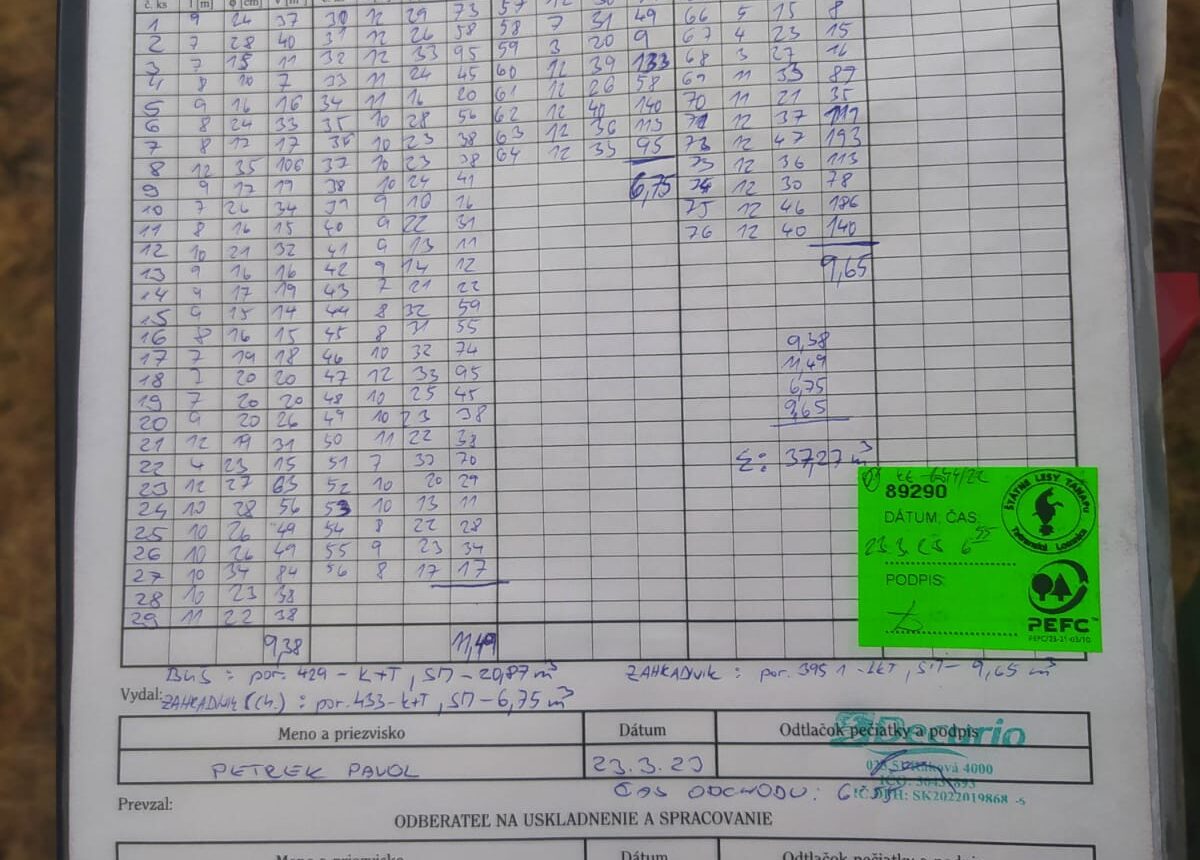 č. ks l [m] ϕ [cm]
1 9 24 37 30 12 29 73 57 12 49 66 5 15 8
2 7 28 40 31 12 26 58 58 7 31 9 67 4 23 15
3 7 15 11 32 12 33 95 59 3 20 133 68 3 27 16
4 8 10 7 33 11 24 45 60 12 39 58 69 11 33 89
5 9 16 16 34 11 16 20 61 12 26 140 70 11 21 35
6 8 24 33 35 10 28 56 62 12 40 113 71 12 37 119
7 8 17 17 36 10 23 38 63 12 36 95 72 12 47 193
8 12 35 106 37 10 23 38 64 12 33 73 12 36 113
9 9 17 19 38 10 24 41 6,75 74 12 30 78
10 7 26 34 39 9 10 16 75 12 46 186
11 8 16 15 40 9 22 31 76 12 40 140
12 10 21 32 41 9 13 11
13 9 16 16 42 9 14 12 9,65
14 9 17 19 43 7 21 22
15 9 15 14 44 8 32 59
16 8 16 15 45 8 31 55 9,38
17 7 19 18 46 10 32 74 11,49
18 7 20 20 47 12 33 95 6,75
19 7 20 20 48 10 25 45 9,65
20 9 20 26 49 10 23 38
21 12 19 31 50 11 22 38
22 4 23 15 51 7 37 70 Σ: 37,27 m³
23 12 27 63 52 10 20 29
24 10 28 56 53 10 13 11
25 10 26 49 54 8 22 28
26 10 26 49 55 9 23 34
27 10 34 84 56 8 17 17
28 10 23 38
29 11 22 38
9,38 11,49
89290
ŠTÁTNE LESY TANAPU
Tatranská Lomnica
DÁTUM, ČAS:
23.3 6 55
PODPIS:
PEFC™
PEFC/23-21-03/10
BUS: por. 429 - k+T, SM - 20,87 m³ ZAHRADNIK: por. 395 1 - LKT, SM - 9,65 m³
Vydal: ZAHRADNIK (Ch.): por. 433 - k+T, SM - 6,75 m³
Meno a priezvisko Dátum Odtlačok pečiatky a podpis
Decorio
PETREK PAVOL 23.3.23
4000
ČAS ODCHODU: 6:55
IČ DPH: SK2022019868 -5
Prevzal:
ODBERATEĽ NA USKLADNENIE A SPRACOVANIE
Meno a priezvisko Dátum Odtlačok pečiatky a podpis